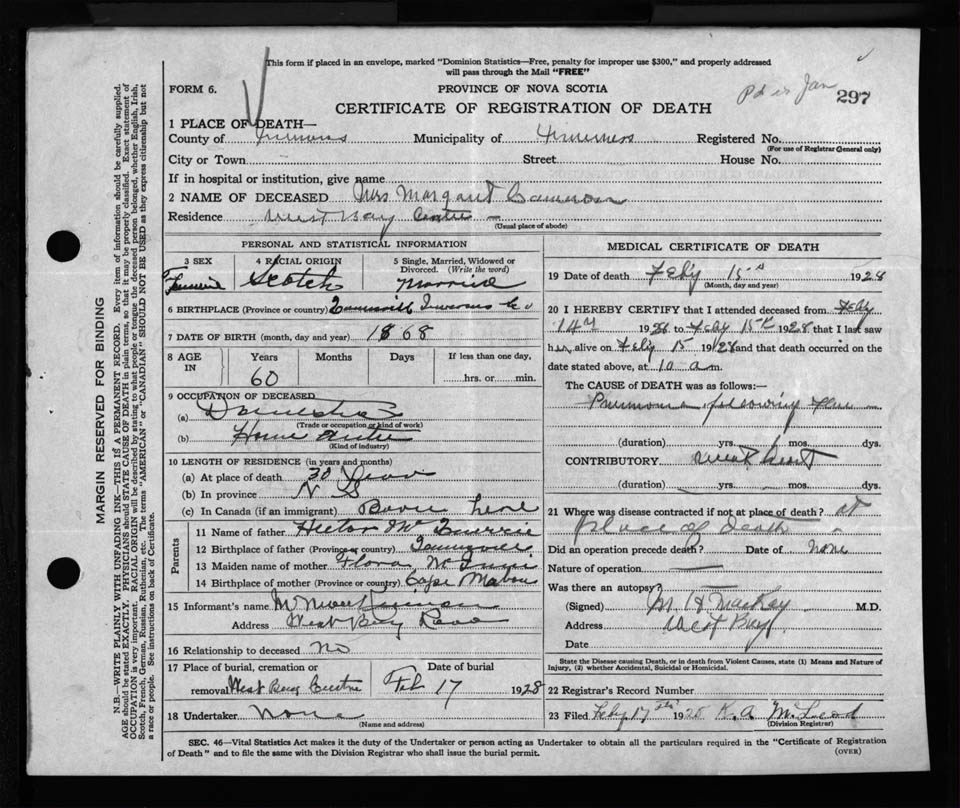 This form if placed in an envelope, marked "Dominion Statistics—Free, penalty for improper use $300," and properly addressed
will pass through the Mail "FREE"
FORM 6.
PROVINCE OF NOVA SCOTIA
297
CERTIFICATE OF REGISTRATION OF DEATH
1 PLACE OF DEATH—
County of Inverness Municipality of Inverness Registered No.
(For use of Registrar General only)
City or Town Street House No.
If in hospital or institution, give name
2 NAME OF DECEASED Mrs Margaret Cameron
Residence West Bay Centre
(Usual place of abode)
PERSONAL AND STATISTICAL INFORMATION
3 SEX 4 RACIAL ORIGIN 5 Single, Married, Widowed or Divorced. (Write the word)
Female Scotch Married
6 BIRTHPLACE (Province or country) Inverness Co
7 DATE OF BIRTH (month, day and year) 1868
8 AGE IN Years Months Days If less than one day,
60 hrs. or min.
9 OCCUPATION OF DECEASED
(a) Domestic
(Trade or occupation or kind of work)
(b) Home
(Kind of industry)
10 LENGTH OF RESIDENCE (in years and months)
(a) At place of death 30 Years
(b) In province N S
(c) In Canada (if an immigrant) Born here
Parents
11 Name of father Hector
12 Birthplace of father (Province or country)
13 Maiden name of mother Flora
14 Birthplace of mother (Province or country) Cape Mabou
15 Informant's name
Address West Bay Road
16 Relationship to deceased no
17 Place of burial, cremation or Date of burial
removal West Bay Centre Feb 17 1928
18 Undertaker None
(Name and address)
MEDICAL CERTIFICATE OF DEATH
19 Date of death Feby 15th 1928
(Month, day and year)
20 I HEREBY CERTIFY that I attended deceased from Feby
14th 1928 to Feby 15th 1928 that I last saw
her alive on Feby 15 1928 and that death occurred on the
date stated above, at 10 a m.
The CAUSE of DEATH was as follows:—
Pneumonia following flu
(duration) yrs. mos. dys.
CONTRIBUTORY weak heart
(duration) yrs. mos. dys.
21 Where was disease contracted if not at place of death? at
place of death
Did an operation precede death? Date of none
Nature of operation
Was there an autopsy?
(Signed) M. H. MacKay M.D.
Address West Bay
Date
State the Disease causing Death, or in death from Violent Causes, state (1) Means and Nature of
Injury, (2) whether Accidental, Suicidal or Homicidal.
22 Registrar's Record Number
23 Filed Feby 17th 1928 K. A. McLeod
(Division Registrar)
SEC. 46—Vital Statistics Act makes it the duty of the Undertaker or person acting as Undertaker to obtain all the particulars required in the "Certificate of Registration
of Death" and to file the same with the Division Registrar who shall issue the burial permit.
(OVER)
MARGIN RESERVED FOR BINDING
N.B.—WRITE PLAINLY WITH UNFADING INK—THIS IS A PERMANENT RECORD. Every item of information should be carefully supplied.
AGE should be stated EXACTLY. PHYSICIANS should STATE CAUSE OF DEATH in plain terms, so that it may be properly classified. Exact statement of
OCCUPATION is very important. RACIAL ORIGIN will be described by stating to what people or tongue the deceased person belonged, whether English, Irish,
Scotch, French, German, Russian, Ruthenian, etc. The terms "AMERICAN" or "CANADIAN" SHOULD NOT BE USED as they express citizenship but not
a race or people. See instructions on back of Certificate.